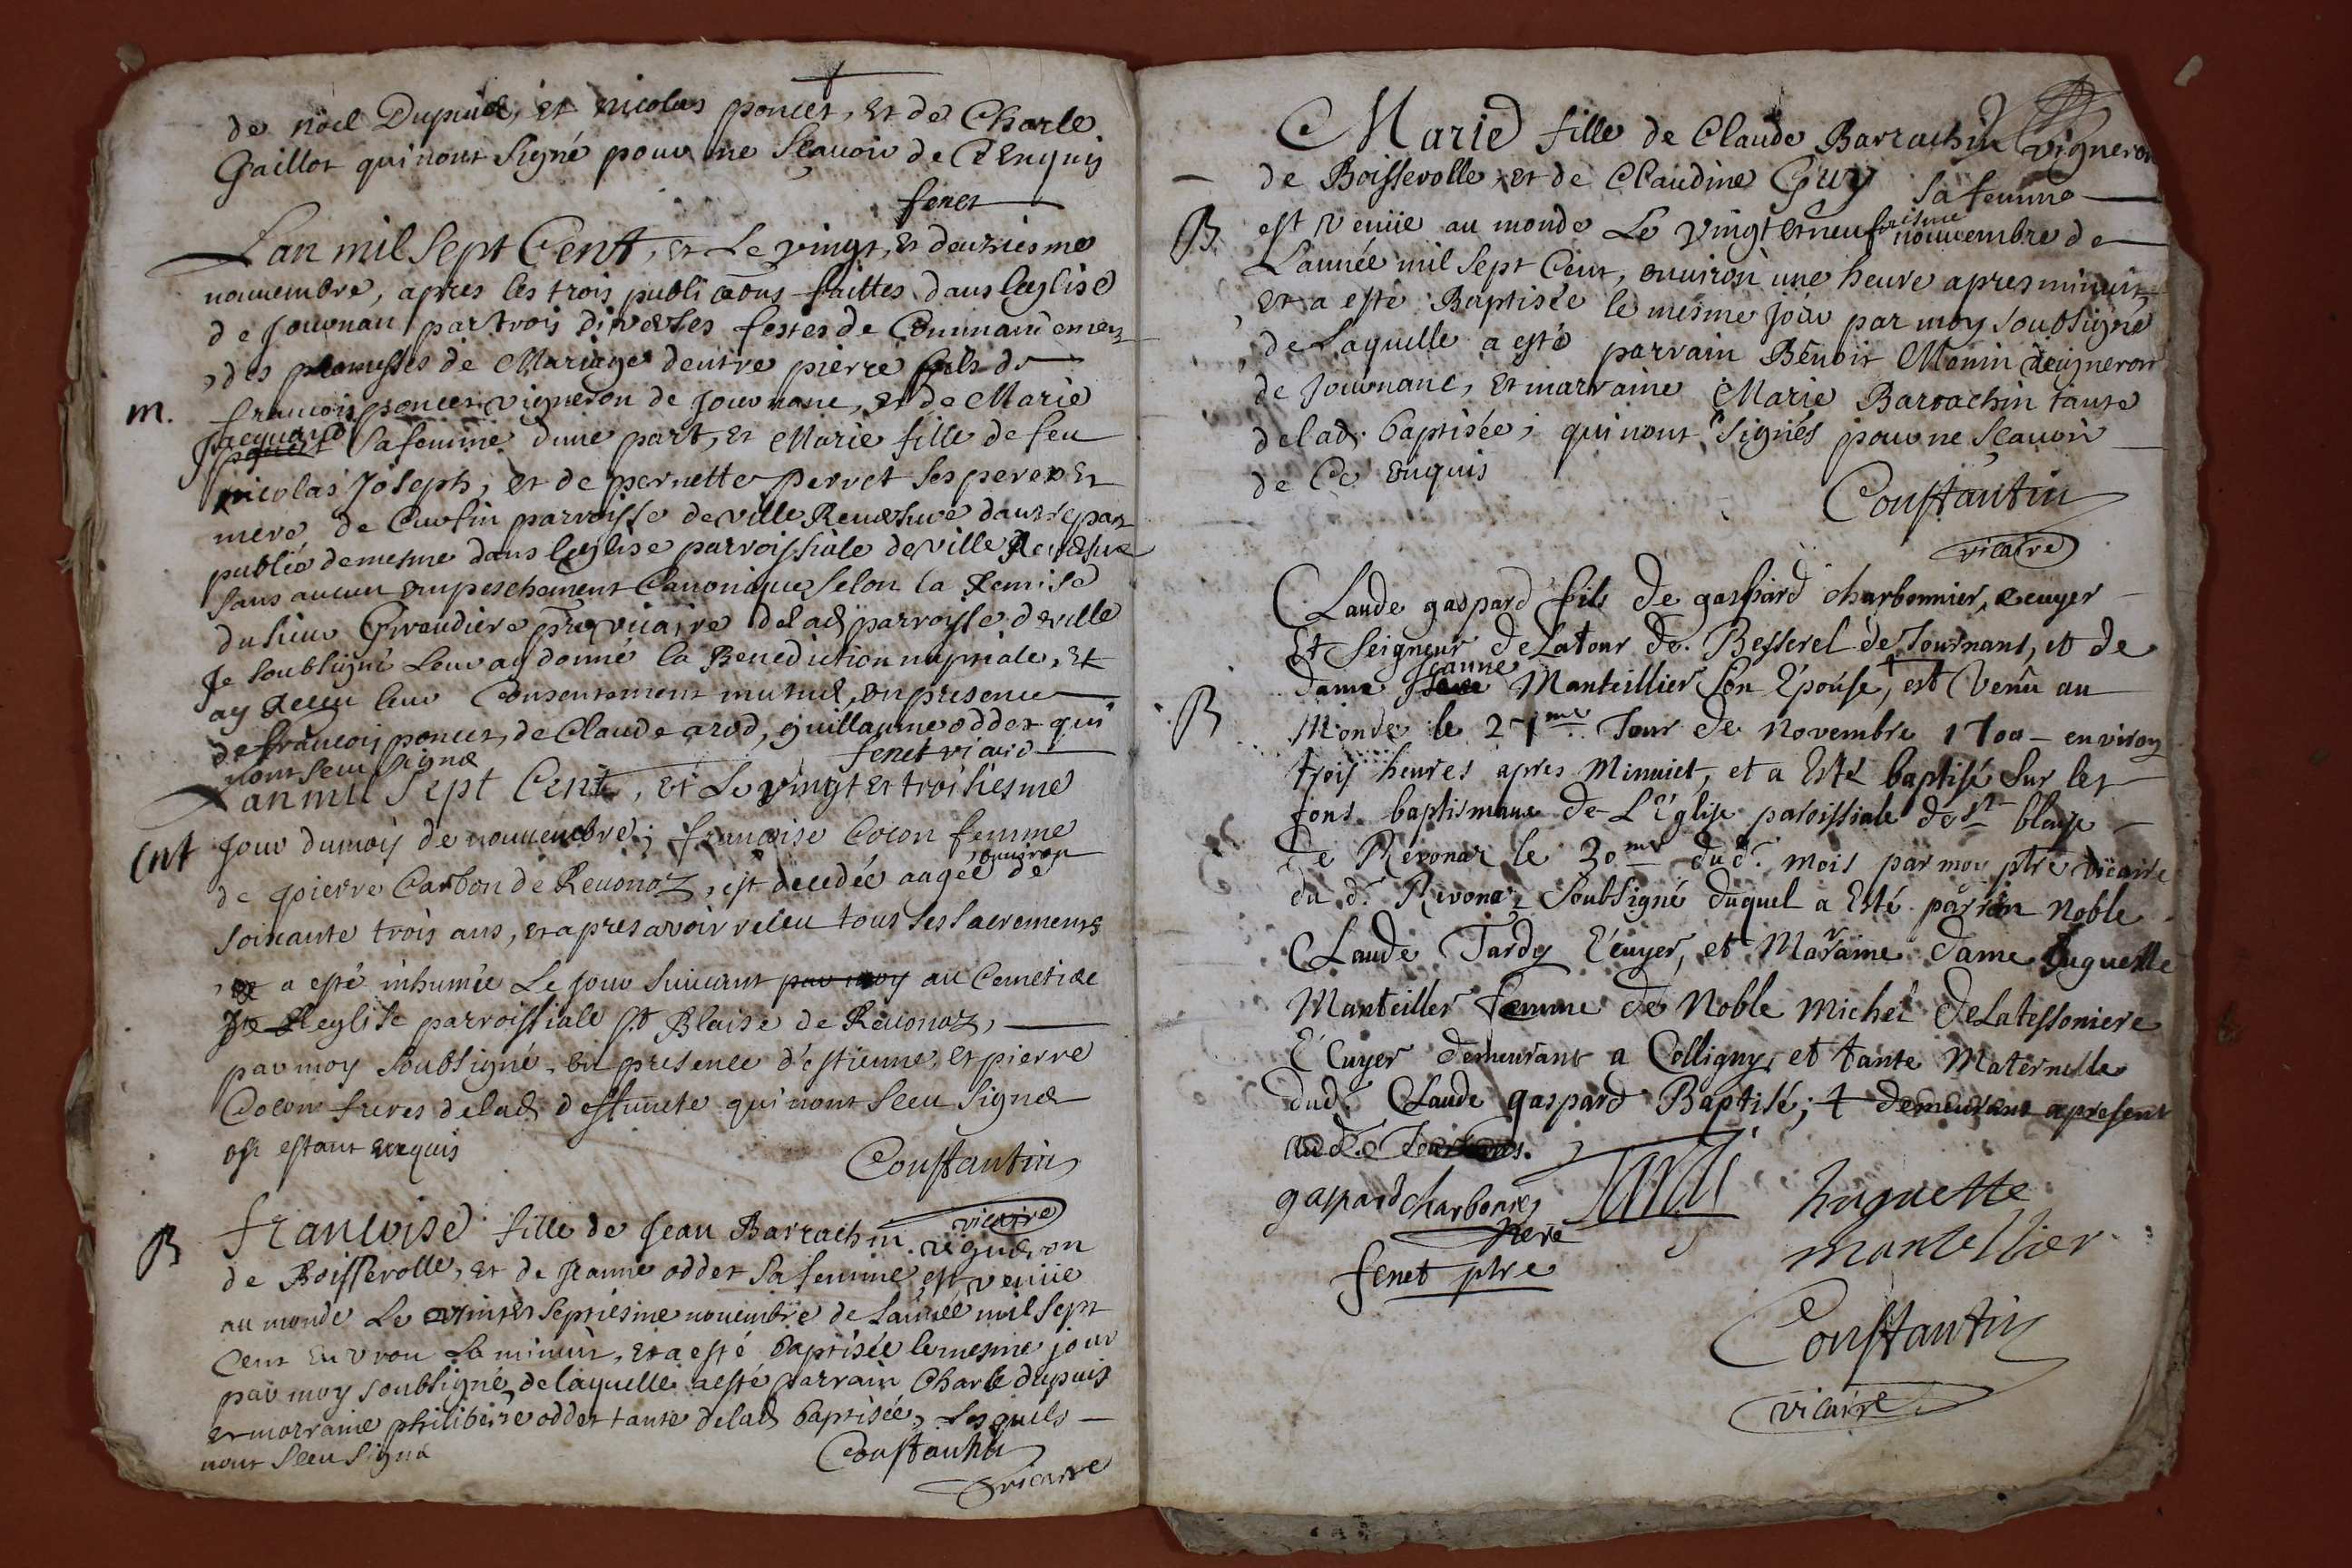 de noël Dupuis, et nicolas poncet, et de Charle
Gaillot qui n'ont signé pour ne sçauoir de ce enquis
fenet
Lan mil sept Cent, et le vingt, et deuxiesme
nouembre, apres les trois publications faittes dans leglise
de Journan par trois diverses festes de Commandement
des promesses de Mariage dentre pierre fils de
m.
francois poncet vigneron de Journanc, et de Marie
Jacquard sa femme dune part, et Marie fille de feu
nicolas Joseph, et de pernette perret ses pere et
mere, de Curfin parroisse de ville Reuersure dautre part
publié de mesme dans leglise parroissiale de ville Reuersure
sans aucun empeschement Canonique selon la Remise
du sieur Girendiere pre vicaire de lad. parroisse de ville
Je soubsigné leur ay donné la Benediction nuptiale, et
ay receu leur Consentement mutuel, en presence
de francois poncet, de Claude arod, guillaume oddet qui
n'ont sceu signé fenet vicaire
Lan mil sept Cent, et le vingt et troisiesme
Ent
Jour du mois de nouembre; francoise Cocon femme
de pierre Carbon de Reuonaz, est decedée aagée de environ
soixante trois ans, et apres avoir receu tous ses sacrements
a esté inhumée le jour suivant par moy au Cemetiere
de leglise parroissiale st Blaise de Reuonaz,
par moy soubsigné, en presence d'estienne, et pierre
Cocon freres de lad. deffuncte qui n'ont sceu signé
de ce estant enquis
Constantin
vicaire
B
francoise fille de Jean Barrachin vigneron
de Boisserolle, et de Jeanne oddet sa femme, est venüe
au monde le vint et septiesme nouembre de lannée mil sept
Cent environ la minuit, et a esté baptisée le mesme jour
par moy soubsigné, de laquelle a esté parrain Charle dupuis
et marraine philiberte oddet tante de lad. baptisée, lesquels
n'ont sceu signé
Constantin
vicaire
Marie fille de Claude Barrachin vigneron
de Boisserolle, et de Claudine Guy sa femme
B
est venüe au monde le vingt et neufviesme nouuembre de
Lannée mil sept Cent, enuiron une heure apres minuit,
et a esté Baptisée le mesme jour par moy soubsigné
de laquelle a esté parrain Benoit Monin vigneron
de Journanc, et marraine Marie Barrachin tante
de lad. baptisée, qui n'ont signés pour ne sçauoir
de ce enquis
Constantin
vicaire
Claude gaspard fils de gaspard charbonnier, ecuyer
Et Seigneur de Latour de Besserel de Journans, et de
dame Jeanne Manteillier son Epouse, † est venu au
B
Monde le 27me Jour de Novembre 1700 – environ
trois heures apres Minuict, et a Esté baptisé sur les
fons baptismaux de L'Eglise paroissiale de st blaise
de Revonaz le 30me dud. mois par moy ptre vicaire
du d. Revonaz soubsigné duquel a Esté parrin Noble
Claude Tardy Ecuyer, et Marraine dame huguette
Manteiller femme de Noble Michel deLatessoniere
Ecuyer demeurant a Colligny, et tante Maternelle
dud. Claude gaspard Baptisé; † demeurant apresent
aud. Journans.
gaspard charbonier
pere
Tardi
huguette
mantellier
fenet ptre
Constantin
vicaire